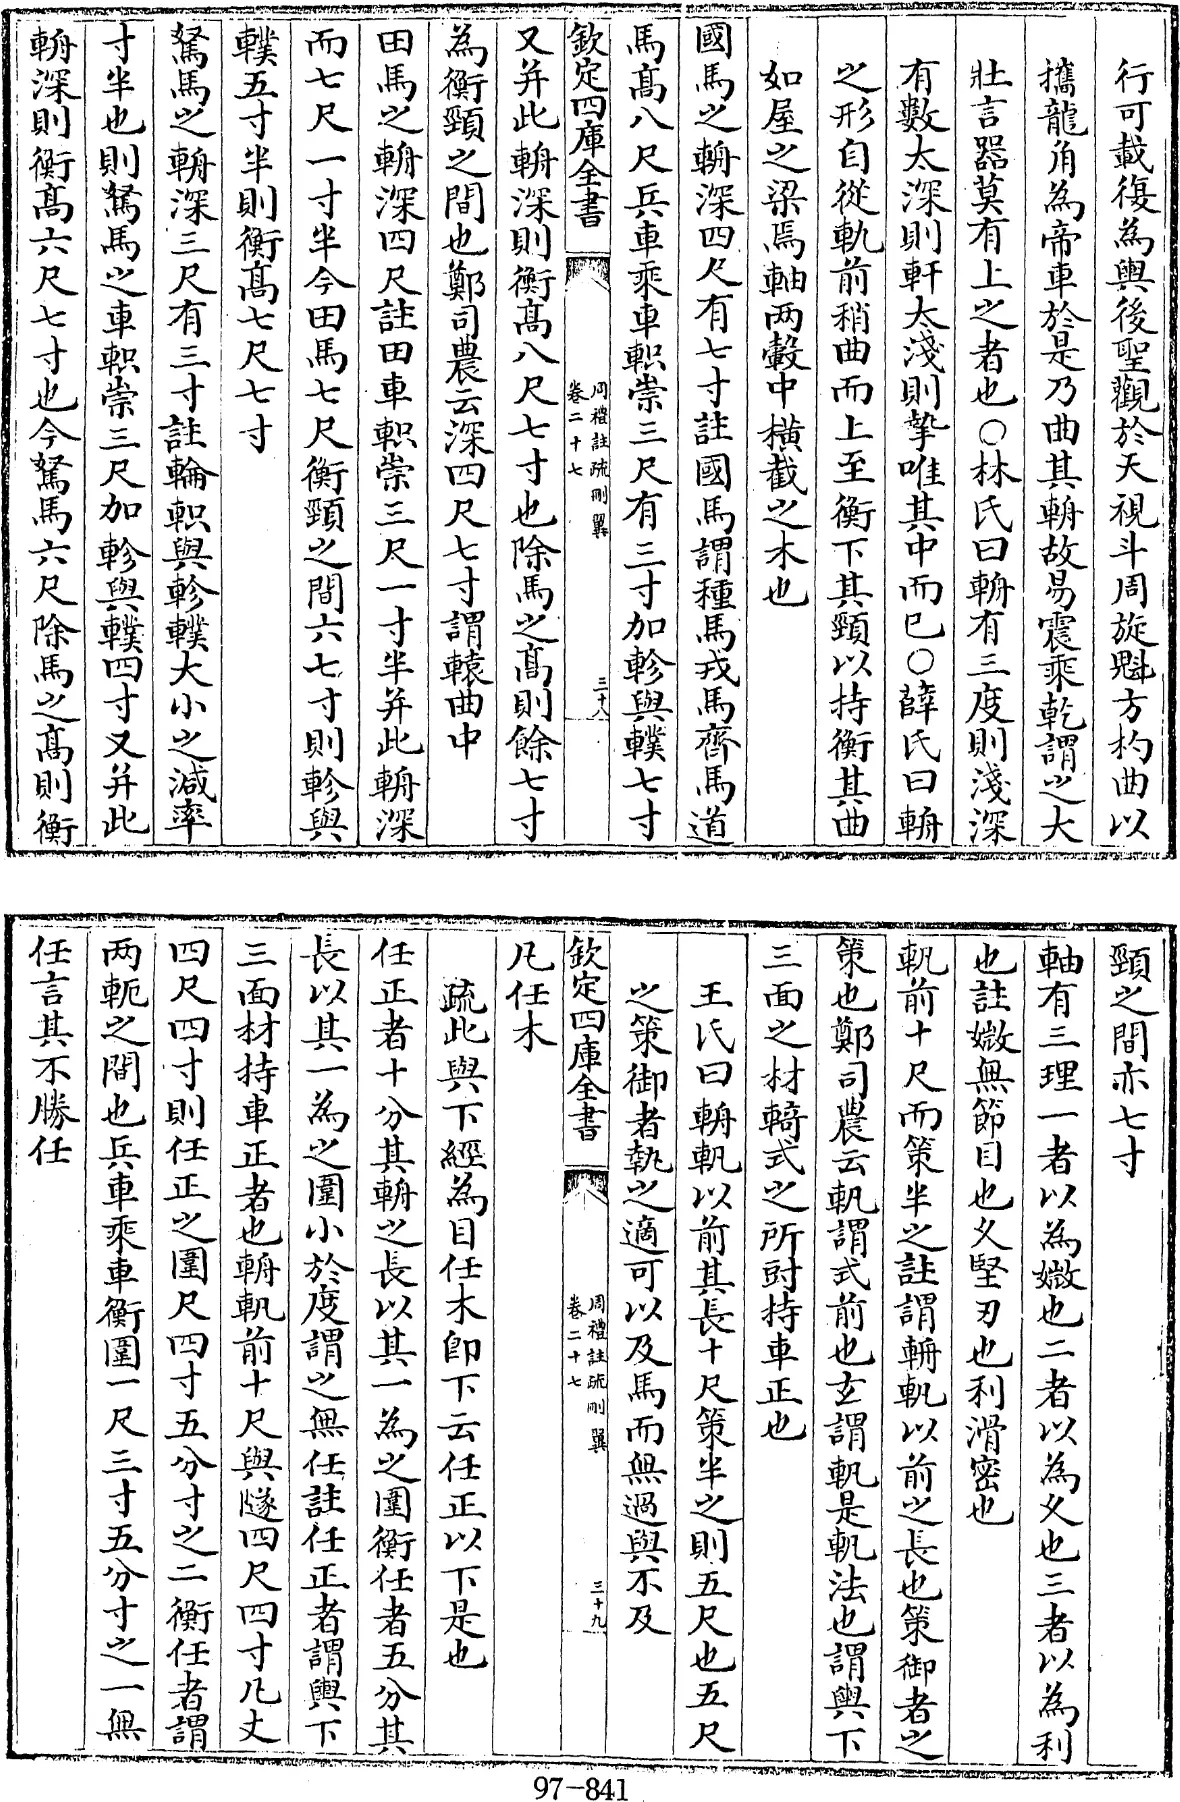 行可載復為輿後聖觀於天視斗周旋魁方杓曲以
攜龍角為帝車於是乃曲其輈故易震乘乾謂之大
壯言器莫有上之者也○林氏曰輈有三度則淺深
有數太深則軒太淺則摯唯其中而已○薛氏曰輈
之形自從軌前稍曲而上至衡下其頸以持衡其曲
如屋之梁焉軸兩轂中橫截之木也
國馬之輈深四尺有七寸註國馬謂種馬戎馬齊馬道
馬高八尺兵車乘車軹崇三尺有三寸加軫與轐七寸
欽定四庫全書
周禮註疏刪翼
卷二十七
三十八
又并此輈深則衡高八尺七寸也除馬之高則餘七寸
為衡頸之間也鄭司農云深四尺七寸謂轅曲中
田馬之輈深四尺註田車軹崇三尺一寸半并此輈深
而七尺一寸半今田馬七尺衡頸之間六七寸則軫與
轐五寸半則衡高七尺七寸
駑馬之輈深三尺有三寸註輪軹與軫轐大小之減率
寸半也則駑馬之車軹崇三尺加軫與轐四寸又并此
輈深則衡高六尺七寸也今駑馬六尺除馬之高則衡
頸之間亦七寸
軸有三理一者以為媺也二者以為久也三者以為利
也註媺無節目也久堅刃也利滑密也
軓前十尺而策半之註謂輈軓以前之長也策御者之
策也鄭司農云軓謂式前也玄謂軓是軓法也謂輿下
三面之材輢式之所尌持車正也
王氏曰輈軓以前其長十尺策半之則五尺也五尺
之策御者執之適可以及馬而無過與不及
凡任木
欽定四庫全書
周禮註疏刪翼
卷二十七
三十九
疏此與下經為目任木卽下云任正以下是也
任正者十分其輈之長以其一為之圍衡任者五分其
長以其一為之圍小於度謂之無任註任正者謂輿下
三面材持車正者也輈軓前十尺與隧四尺四寸凡丈
四尺四寸則任正之圍尺四寸五分寸之二衡任者謂
兩軛之間也兵車乘車衡圍一尺三寸五分寸之一無
任言其不勝任
97-841